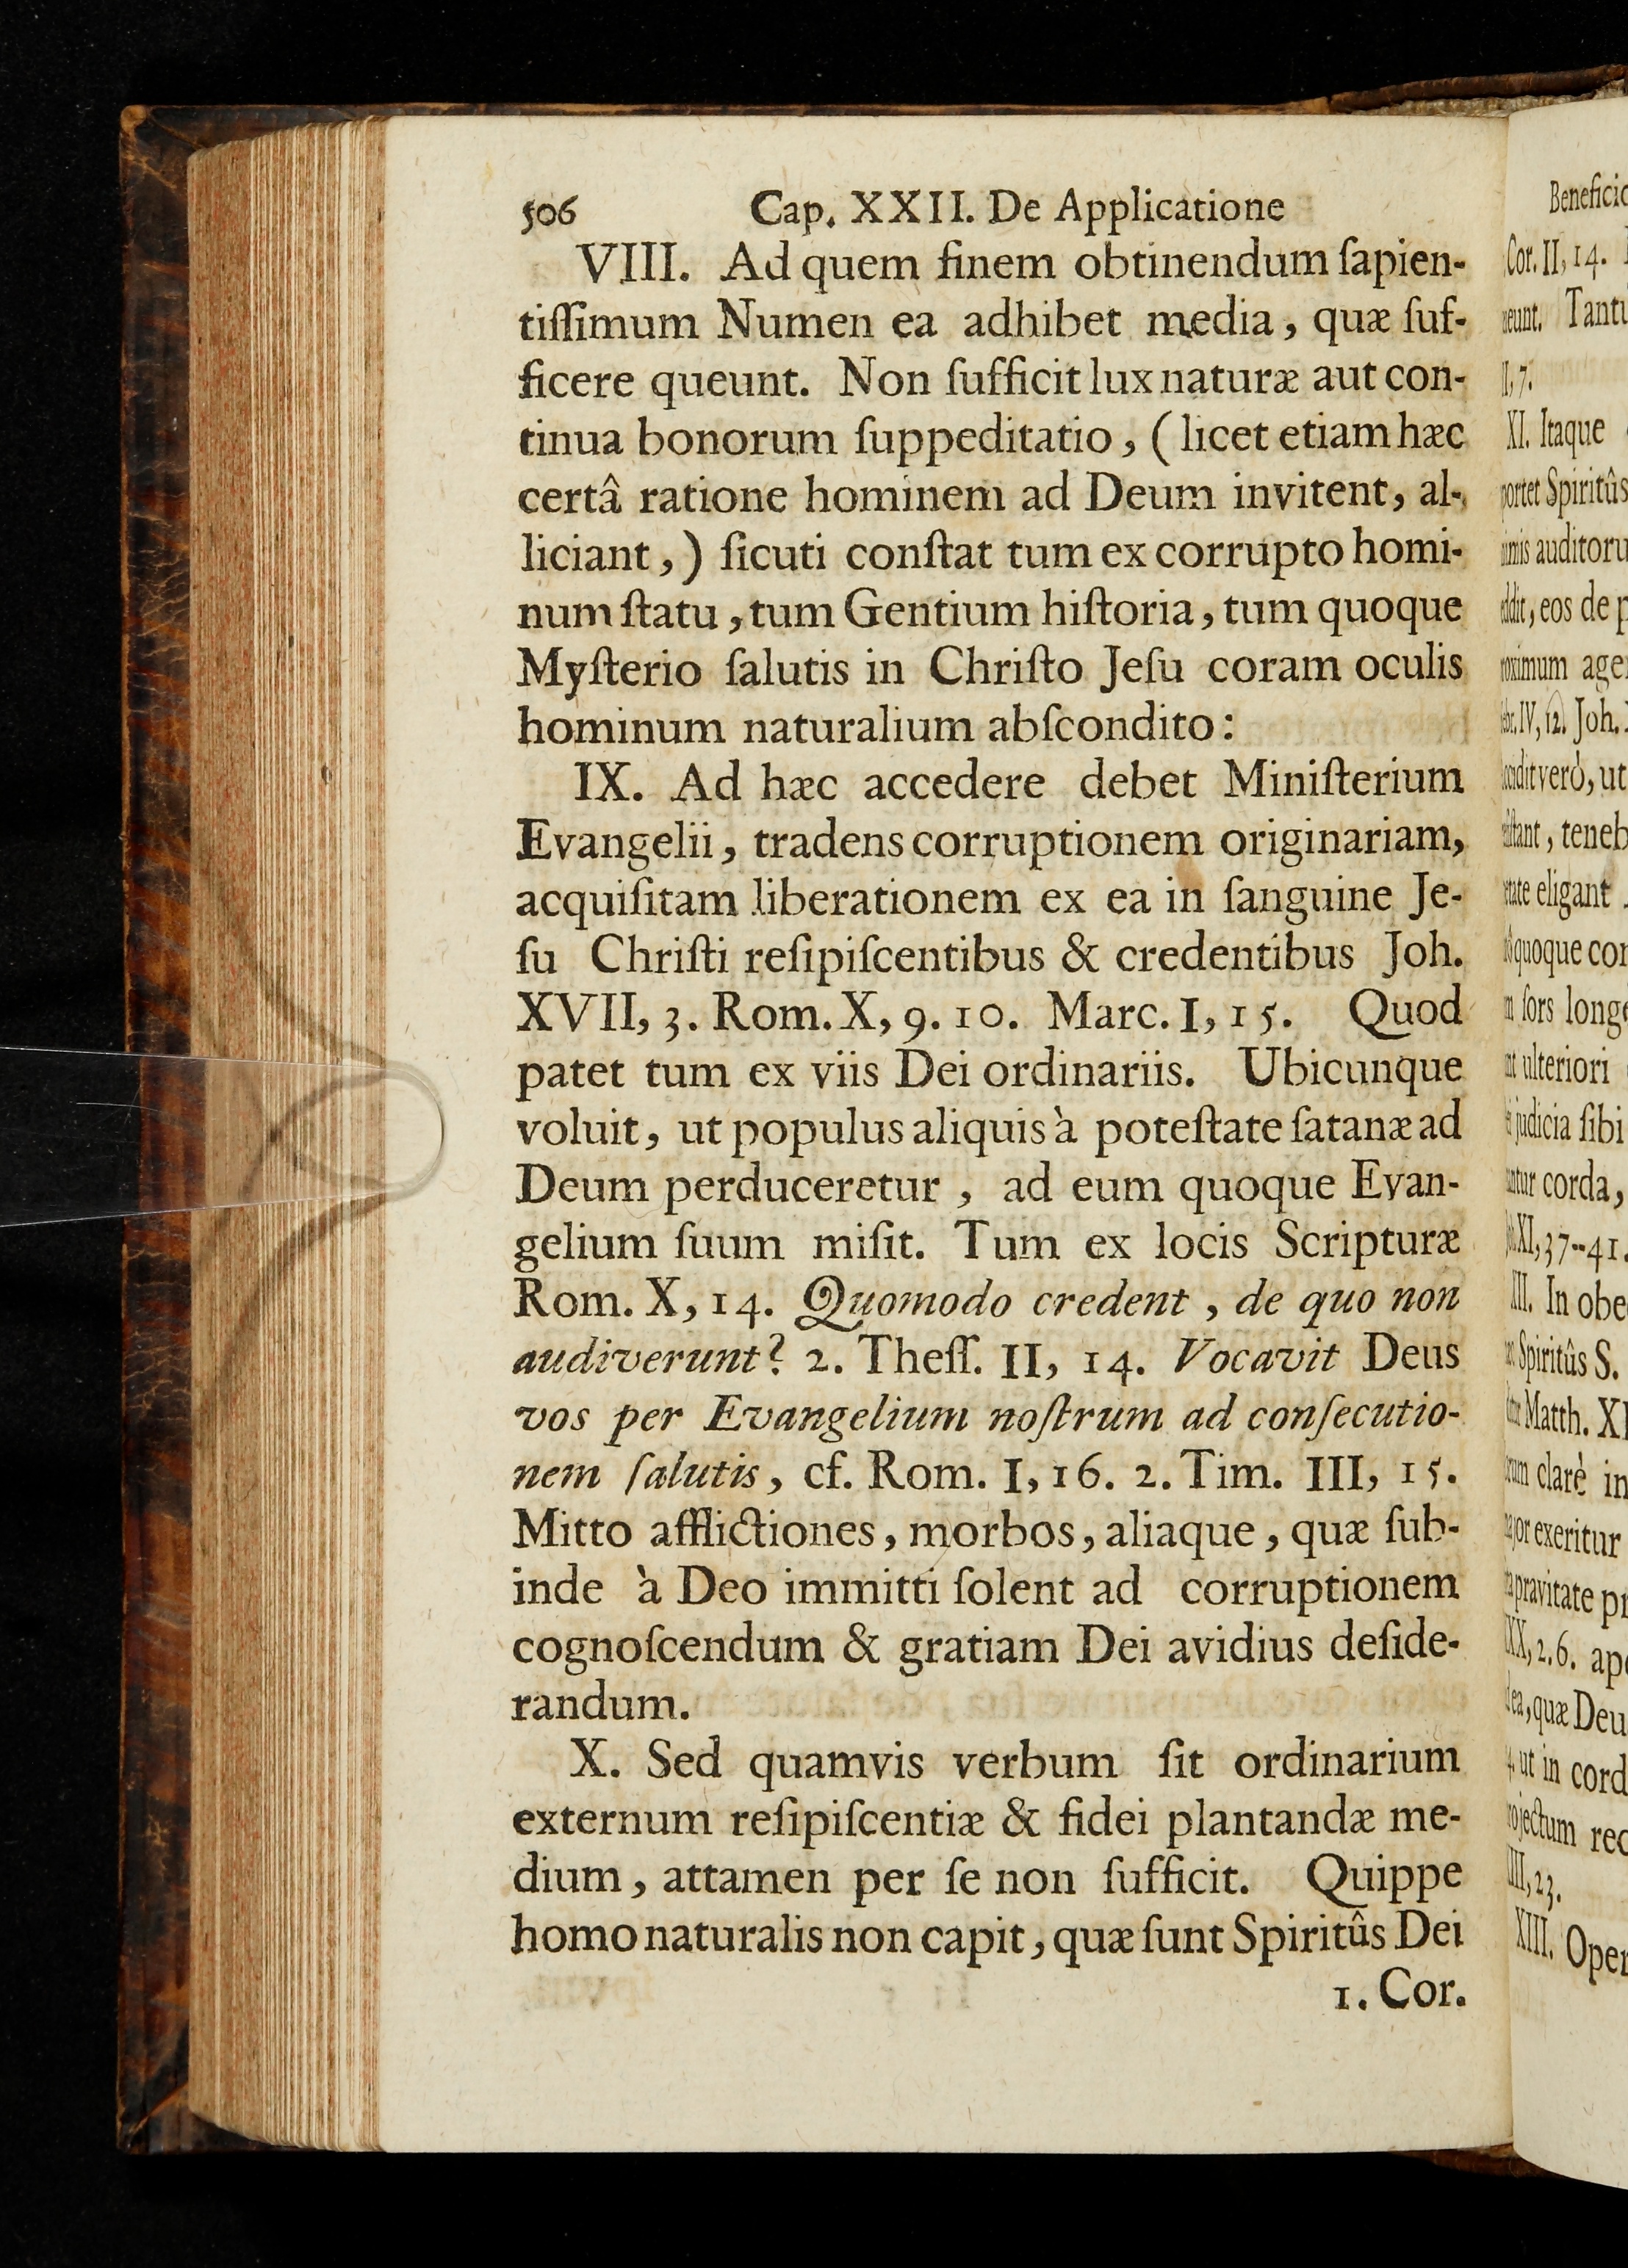 506 Cap. XXII. De Applicatione
VIII. Ad quem finem obtinendum ſapien-
tiſſimum Numen ea adhibet media, quæ ſuf-
ficere queunt. Non ſufficit lux naturæ aut con-
tinua bonorum ſuppeditatio, (licet etiam hæc
certâ ratione hominem ad Deum invitent, al-
liciant,) ſicuti conſtat tum ex corrupto homi-
num ſtatu, tum Gentium hiſtoria, tum quoque
Myſterio ſalutis in Chriſto Jeſu coram oculis
hominum naturalium abſcondito:
IX. Ad hæc accedere debet Miniſterium
Evangelii, tradens corruptionem originariam,
acquiſitam liberationem ex ea in ſanguine Je-
ſu Chriſti reſipiſcentibus & credentibus Joh.
XVII, 3. Rom. X, 9. 10. Marc. I, 15. Quod
patet tum ex viis Dei ordinariis. Ubicunque
voluit, ut populus aliquis à poteſtate ſatanæ ad
Deum perduceretur, ad eum quoque Evan-
gelium ſuum miſit. Tum ex locis Scripturæ
Rom. X, 14. Quomodo credent, de quo non
audiverunt? 2. Theſſ. II, 14. Vocavit Deus
vos per Evangelium noſtrum ad conſecutio-
nem ſalutis, cf. Rom. I, 16. 2. Tim. III, 15.
Mitto afflictiones, morbos, aliaque, quæ ſub-
inde à Deo immitti ſolent ad corruptionem
cognoſcendum & gratiam Dei avidius deſide-
randum.
X. Sed quamvis verbum ſit ordinarium
externum reſipiſcentiæ & fidei plantandæ me-
dium, attamen per ſe non ſufficit. Quippe
homo naturalis non capit, quæ ſunt Spiritûs Dei
1. Cor.
Cor. II, 14.
Tant
7.
XI. Itaque
Spiritûs
auditoru
eos de
IV, 12. Joh.
verò, ut
eligant
quoque
ſors
ulteriori
judicia ſibi
corda,
XI, 37--41.
In
Spiritûs S.
Matth.
clarè in
exeritur
pravitate
2. 6.
quæ Deu
ut in cord
23.
XIII. Oper